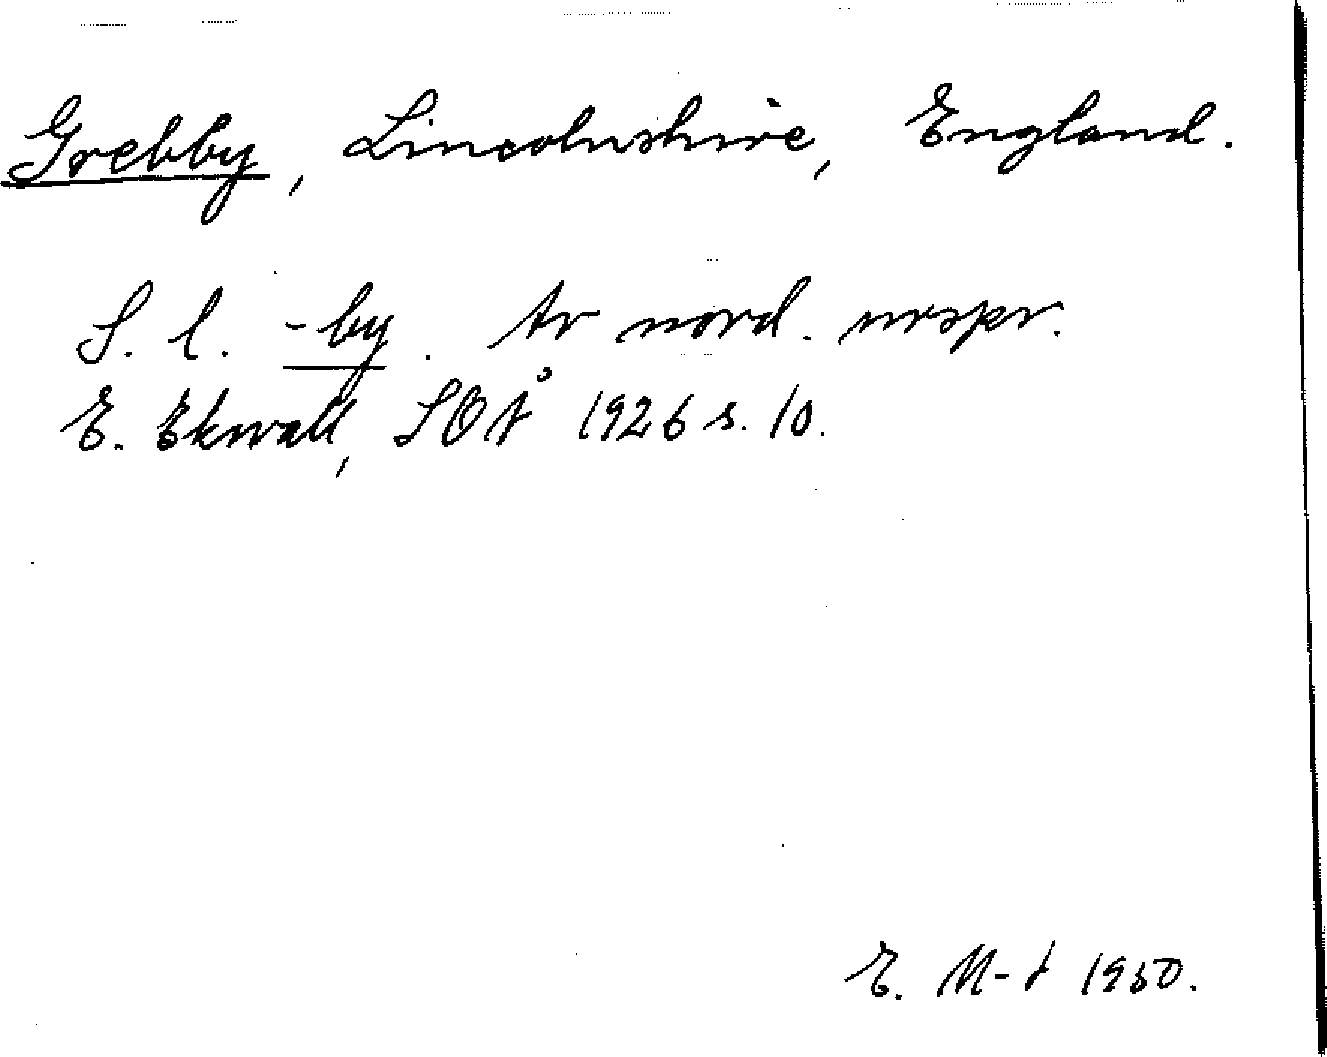 Grebby, Lincolnshire, England.
S. l. -by. Av nord. urspr.
E. Ekwall, SOÅ 1926 s. 10.
E. M-t 1950.